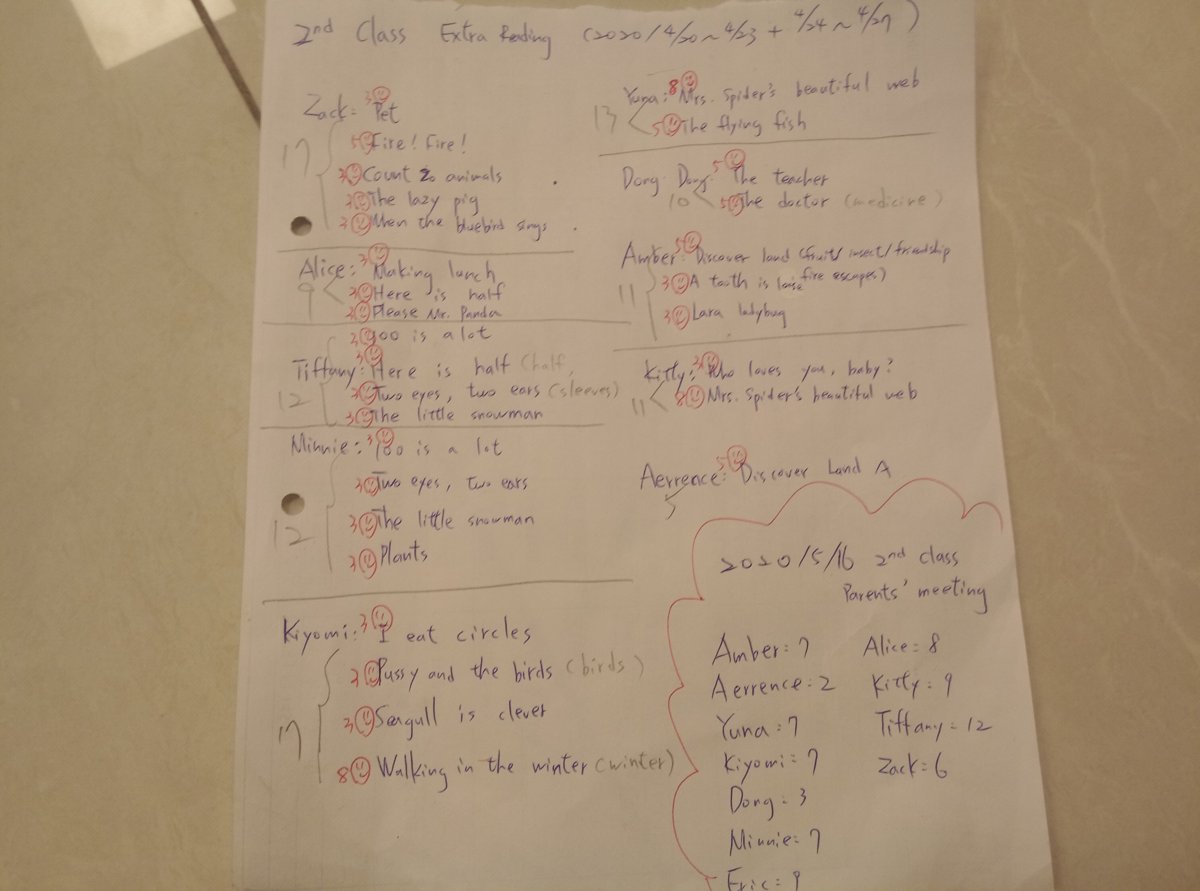 2nd Class Extra Reading (2020/4/20~4/23 + 4/24~4/27)
Zack: 3 Pet
17
5 Fire! Fire!
3 Count 20 animals
3 The lazy pig
3 When the bluebird sings
Alice: 3 Making lunch
9
3 Here is half
3 Please Mr. Panda
3 100 is a lot
Tiffany: 3 Here is half (half,
12
3 Two eyes, two ears (sleeves)
3 The little snowman
Minnie: 3 100 is a lot
3 Two eyes, two ears
12
3 The little snowman
3 Plants
Kiyomi: 3 I eat circles
3 Pussy and the birds (birds)
17
3 Seagull is clever
8 Walking in the winter (winter)
Yuna: 8 Mrs. Spider's beautiful web
13
5 The flying fish
Dong Dong: 5 The teacher
10
5 The doctor (medicine)
Amber: 5 Discover land (fruit/insect/friendship
fire escapes)
11
3 A tooth is loose
3 Lara ladybug
Kitty: 3 Who loves you, baby?
11
8 Mrs. Spider's beautiful web
Aerrence: 5 Discover Land A
5
2020/5/16 2nd class
Parents' meeting
Amber: 7 Alice: 8
Aerrence: 2 Kitty: 9
Yuna: 7 Tiffany: 12
Kiyomi: 7 Zack: 6
Dong: 3
Minnie: 7
Eric: 9